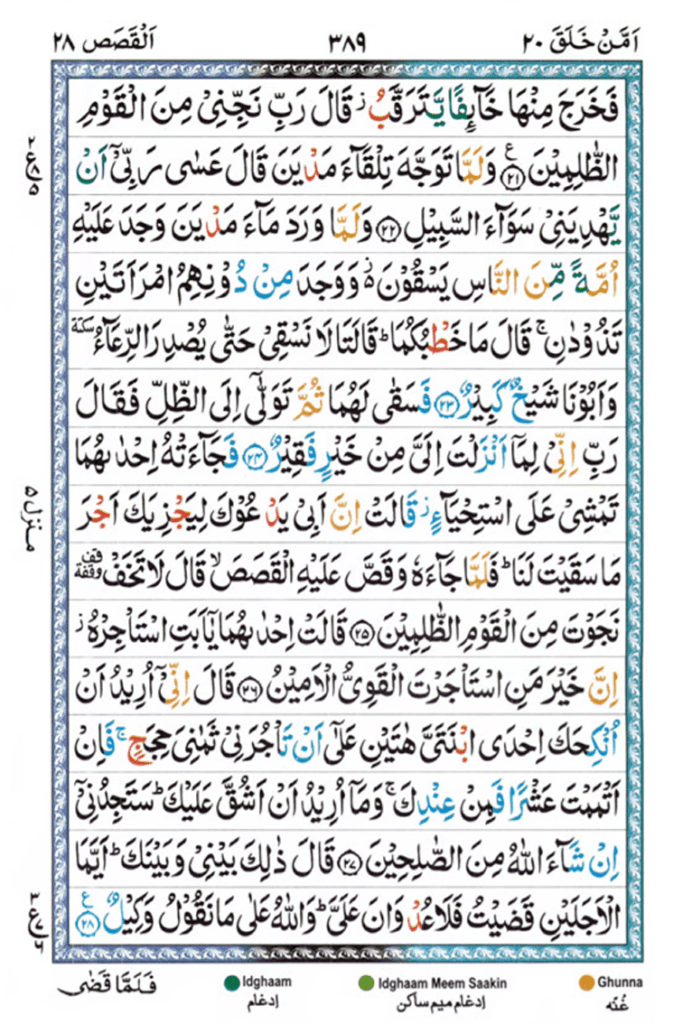 اَمَّنْ خَلَقَ ٢٠ ٣٨٩ اَلْقَصَص ٢٨
فَخَرَجَ مِنْهَا خَآئِفًا يَّتَرَقَّبُ ز قَالَ رَبِّ نَجِّنِيْ مِنَ الْقَوْمِ
الظّٰلِمِيْنَ ﴿٢١﴾ ع وَلَمَّا تَوَجَّهَ تِلْقَآءَ مَدْيَنَ قَالَ عَسٰى رَبِّيْٓ اَنْ
يَّهْدِيَنِيْ سَوَآءَ السَّبِيْلِ ﴿٢٢﴾ وَلَمَّا وَرَدَ مَآءَ مَدْيَنَ وَجَدَ عَلَيْهِ
اُمَّةً مِّنَ النَّاسِ يَسْقُوْنَ ۬ وَوَجَدَ مِنْ دُوْنِهِمُ امْرَاَتَيْنِ
تَذُوْدٰنِ ۚ قَالَ مَا خَطْبُكُمَا ؕ قَالَتَا لَا نَسْقِيْ حَتّٰى يُصْدِرَ الرِّعَآءُ سكتة
وَاَبُوْنَا شَيْخٌ كَبِيْرٌ ﴿٢٣﴾ فَسَقٰى لَهُمَا ثُمَّ تَوَلّٰٓى اِلَى الظِّلِّ فَقَالَ
رَبِّ اِنِّيْ لِمَآ اَنْزَلْتَ اِلَيَّ مِنْ خَيْرٍ فَقِيْرٌ ﴿٢٤﴾ فَجَآءَتْهُ اِحْدٰىهُمَا
تَمْشِيْ عَلَى اسْتِحْيَآءٍ ز قَالَتْ اِنَّ اَبِيْ يَدْعُوْكَ لِيَجْزِيَكَ اَجْرَ
مَا سَقَيْتَ لَنَا ؕ فَلَمَّا جَآءَهٗ وَقَصَّ عَلَيْهِ الْقَصَصَ ۙ قَالَ لَا تَخَفْ قف وقفة
نَجَوْتَ مِنَ الْقَوْمِ الظّٰلِمِيْنَ ﴿٢٥﴾ قَالَتْ اِحْدٰىهُمَا يٰٓاَبَتِ اسْتَاْجِرْهُ ز
اِنَّ خَيْرَ مَنِ اسْتَاْجَرْتَ الْقَوِيُّ الْاَمِيْنُ ﴿٢٦﴾ قَالَ اِنِّيْٓ اُرِيْدُ اَنْ
اُنْكِحَكَ اِحْدَى ابْنَتَيَّ هٰتَيْنِ عَلٰٓى اَنْ تَاْجُرَنِيْ ثَمٰنِيَ حِجَجٍ ۚ فَاِنْ
اَتْمَمْتَ عَشْرًا فَمِنْ عِنْدِكَ ۚ وَمَآ اُرِيْدُ اَنْ اَشُقَّ عَلَيْكَ ؕ سَتَجِدُنِيْٓ
اِنْ شَآءَ اللّٰهُ مِنَ الصّٰلِحِيْنَ ﴿٢٧﴾ قَالَ ذٰلِكَ بَيْنِيْ وَبَيْنَكَ ؕ اَيَّمَا
الْاَجَلَيْنِ قَضَيْتُ فَلَا عُدْوَانَ عَلَيَّ ؕ وَاللّٰهُ عَلٰى مَا نَقُوْلُ وَكِيْلٌ ﴿٢٨﴾ ع
منزل ٥
فَلَمَّا قَضٰى
Idghaam
إدغام
Idghaam Meem Saakin
إدغام ميم ساكن
Ghunna
غُنّه